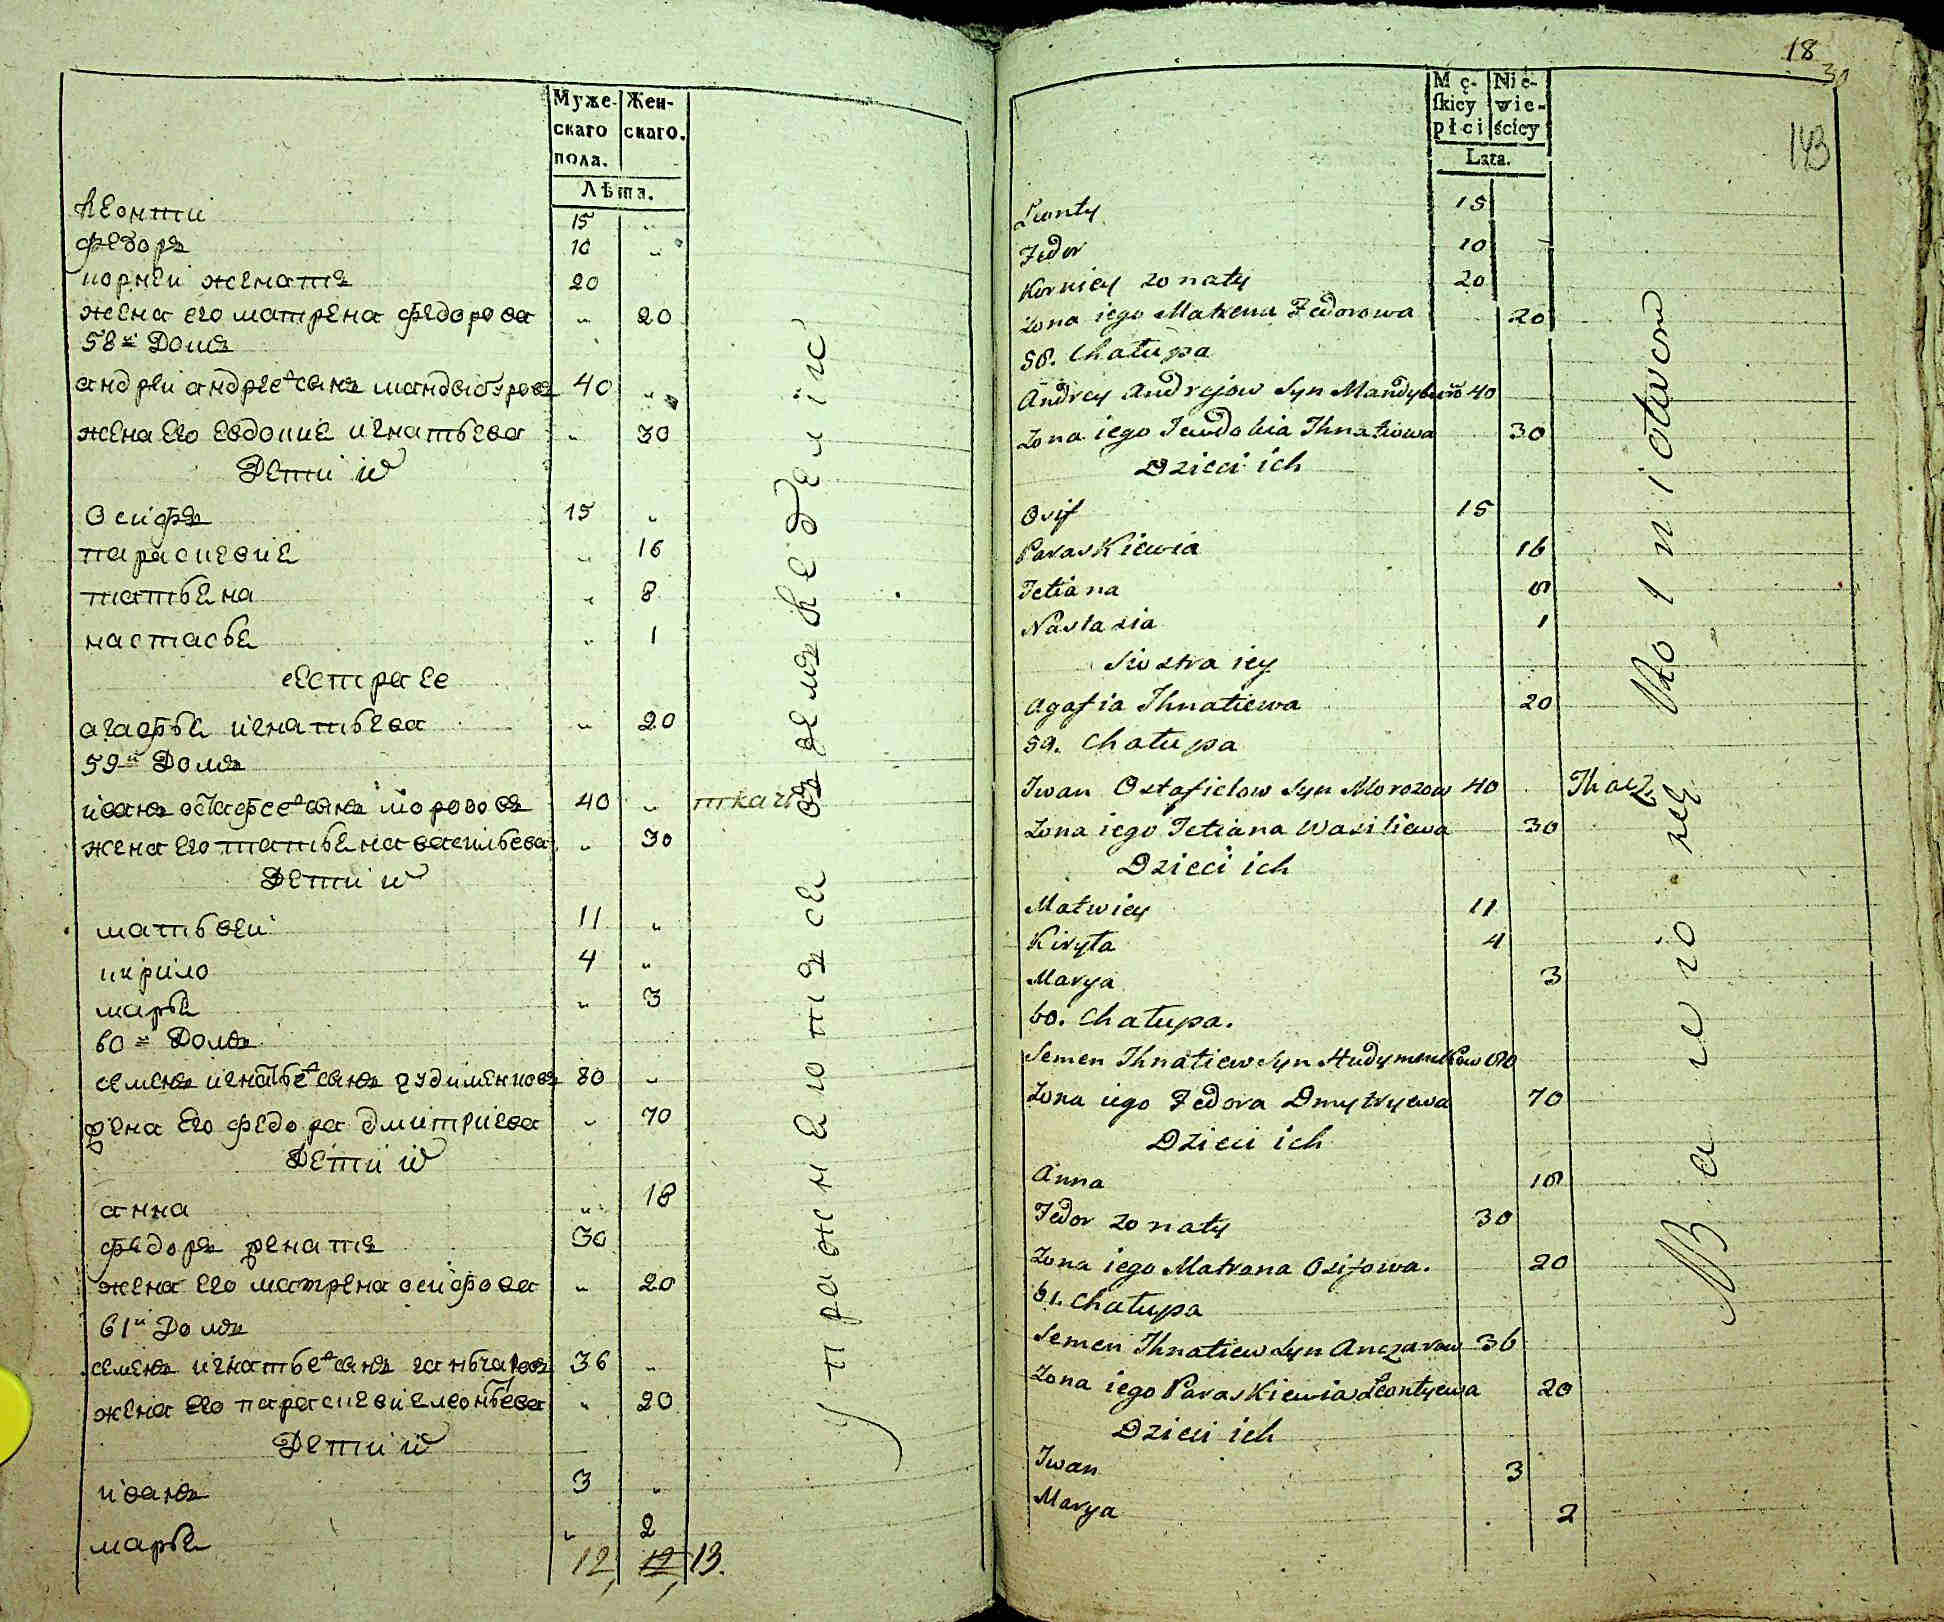 Муже- Жен-
скаго скаго.
пола.
Лѣта.
леонти 15 "
федоръ 10 "
корнеи женатъ 20
жена его матрена федорова " 20
58й Домъ
андреи андреевъ сынъ мандыбуровъ 40 "
жена его евдокие игнатьева " 30
Дети их
осифъ 15 "
параскевие " 16
татьена " 8
настасье " 1
сестра ее
агафье игнатьева " 20
59й Домъ
иванъ остафеевъ сынъ морозовъ 40 " ткачъ
жена его татьена васильева " 30
Дети их
матьвеи 11 "
кирило 4 "
марье " 3
60й Домъ
семенъ игнатьевъ сынъ гудименковъ 80 "
жена его федора дмитриева " 70
Дети их
анна " 18
федоръ женатъ 30
жена его матрена осифова " 20
61й Домъ
семенъ игнатьевъ сынъ ганьчаровъ 36 "
жена его параскевие леонтьева " 20
Дети их
иванъ 3 "
марье " 2
12, 12, 13.
Упражнеютзсе въ земъледеліи
18
30
143
Mę- Nie-
skiey wie-
płci ściey
Lata.
Leonty 15
Fedor 10
Korniey żonaty 20
Żona iego Matrena Fedorowa 20
58. Chałupa
Andrey Andrejow Syn Mandyburow 40
Żona iego Jewdokia Ihnatiowa 30
Dzieci ich
Osif 15
Paraskiewia 16
Tetiana 8
Nastasia 1
Siostra iey
Agafia Ihnatiewa 20
59. Chałupa
Iwan Ostafielow Syn Morozow 40 Tkacz
Żona iego Tetiana Wasiliewa 30
Dzieci ich
Matwiey 11
Kiryła 4
Marya 3
60. Chałupa.
Semen Ihnatiew Syn Hudymenkow 80
Żona iego Fedora Dmytryewa 70
Dzieci ich
Anna 18
Fedor żonaty 30
Żona iego Matrona Osifowa. 20
61. Chałupa
Semen Ihnatiew Syn Anczarow 36
Żona iego Paraskiewia Leontyewa 20
Dzieci ich
Iwan 3
Marya 2
Bawio się Rolnictwem